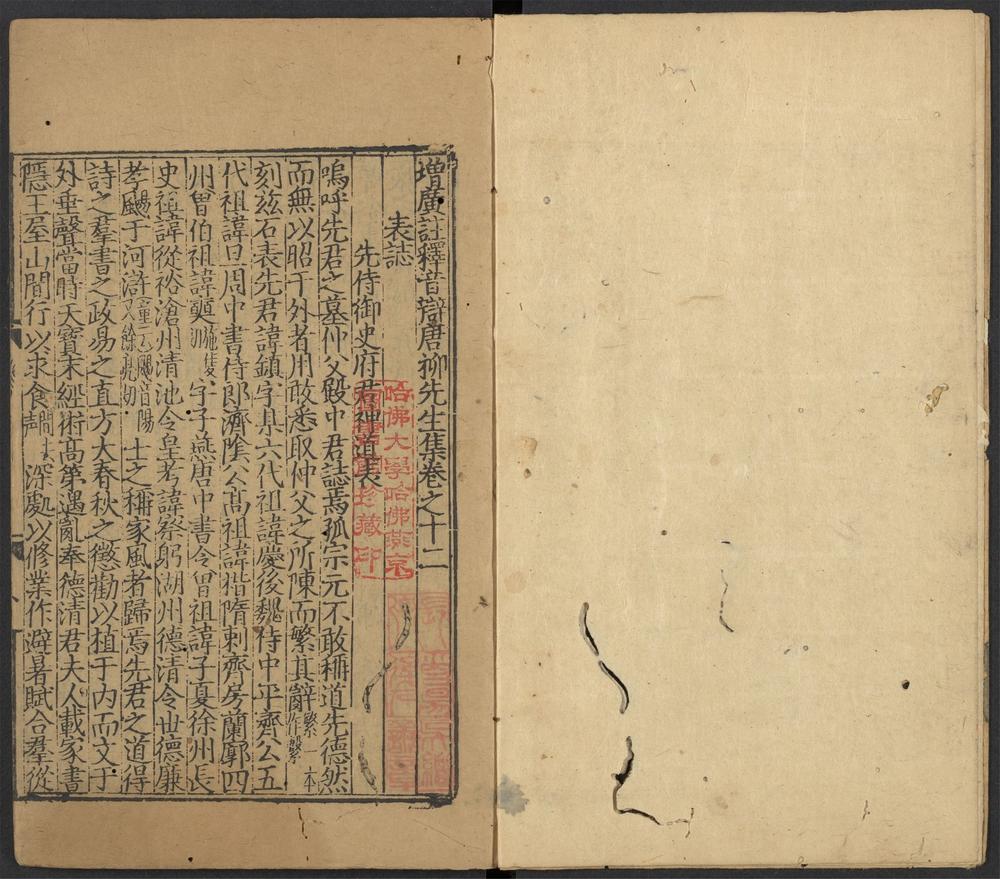 增廣註釋音辯唐柳先生集卷之十二
表誌
先侍御史府君神道表
嗚呼先君之墓仲父殿中君誌焉孤宗元不敢稱道先德然
而無以昭于外者用敢悉取仲父之所陳而繁其辭繁一本作繫
刻兹石表先君諱鎮字某六代祖諱慶後魏侍中平齊公五
代祖諱旦周中書侍郎濟隂公高祖諱楷隋刺齊房蘭廓四
州曾伯祖諱奭施隻切字子燕唐中書令曾祖諱子夏徐州長
史祖諱從裕滄州清池令皇考諱察躬湖州德清令世德廉
孝颺于河滸童云颺音陽又餘亮切士之稱家風者歸焉先君之道得
詩之羣書之政易之直方大春秋之懲勸以植于内而文于
外垂聲當時天寶末經術高第遇亂奉德清君夫人載家書
隱王屋山間行以求食間去聲深處以修業作避暑賦合羣從
哈佛大學哈佛燕京
圖書館珍藏印